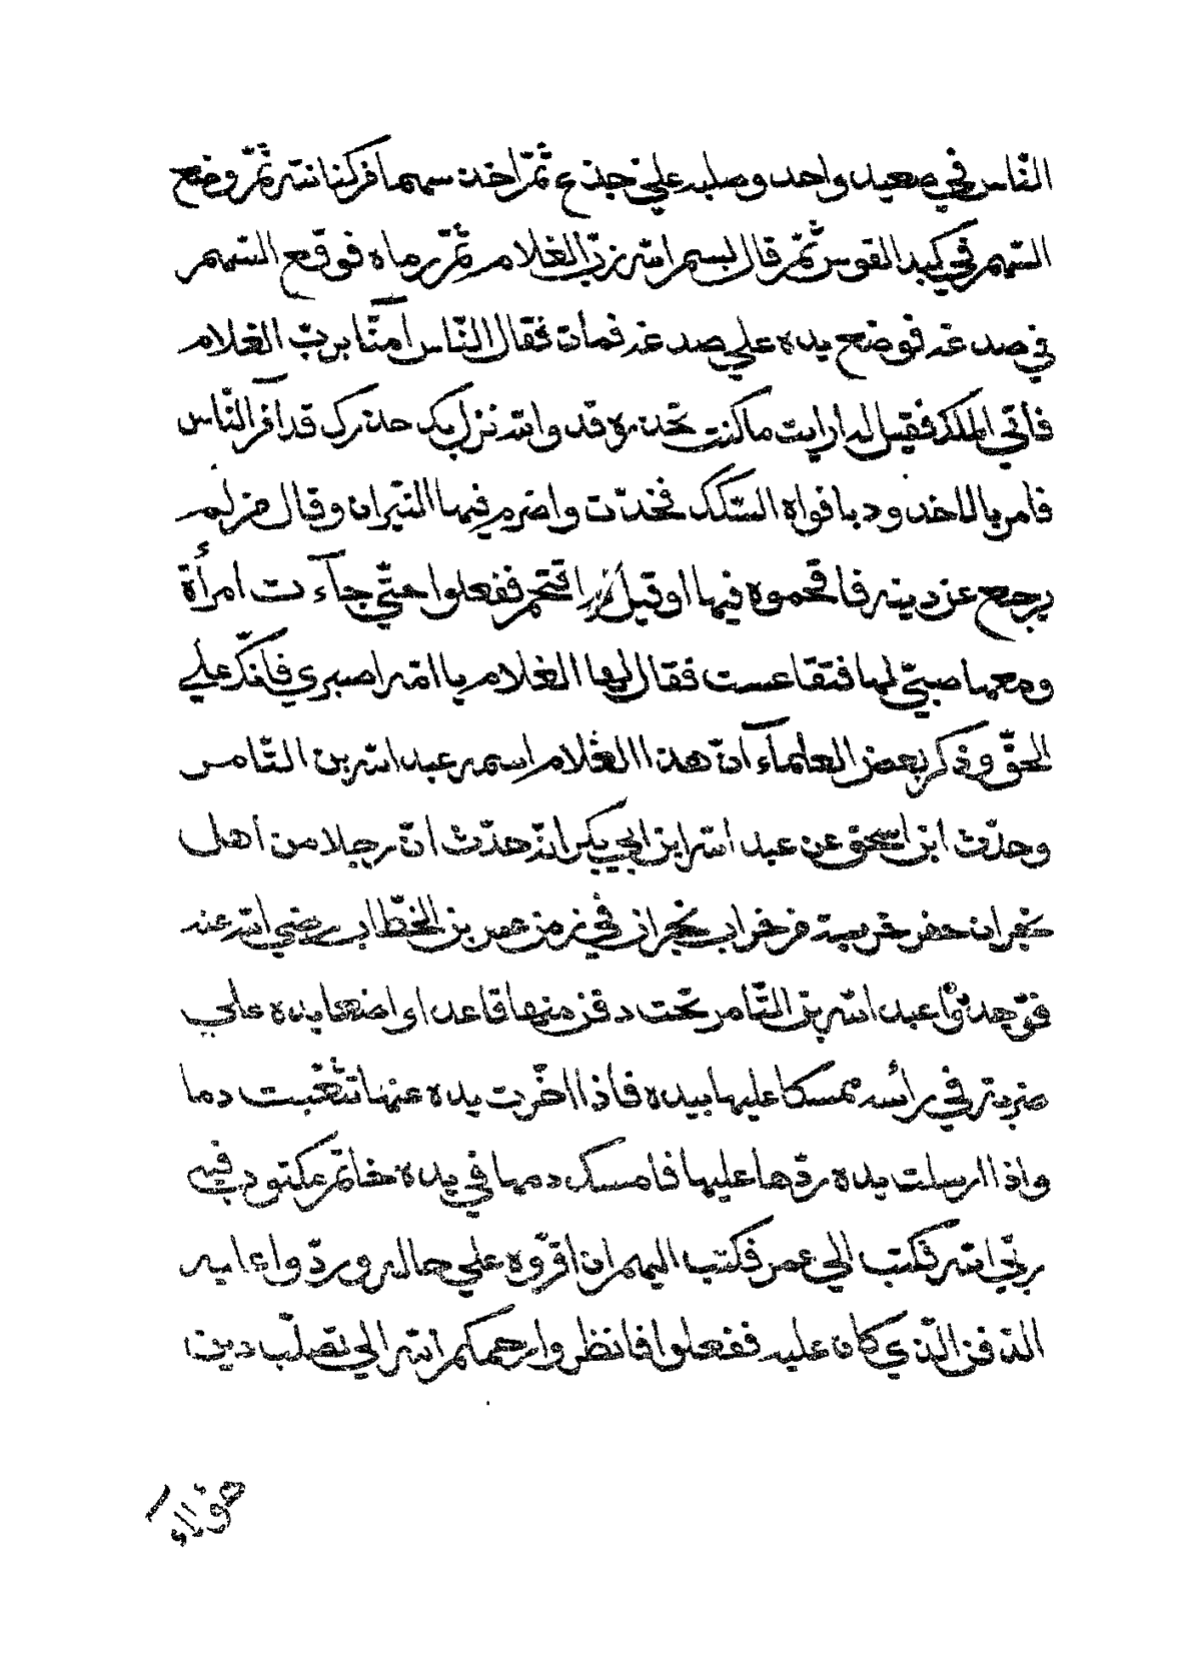 النّاس في صعيد واحد وصلبه علي جذع ثمّ اخذ سهما من كنانته ثمّ وضع
السّهم في كبد القوس ثمّ قال بسم الله ربّ الغلام ثمّ رماه فوقع السّهم
في صدغه فوضع يده علي صدغه فمات فقال النّاس آمنّا بربّ الغلام
فأتي الملك فقيل له ارايت ما كنت تحذره قد والله نزل بك حذرك قد آمن النّاس
فامر بالاخدود بافواه السّكك فخدّت واضرم فيها النّيران وقال من لم
يرجع عن دينه فاقحموه فيها اوقيل له اقتحم ففعلوا حتّي جآءت امرأة
ومعها صبيّ لها فتقاعست فقال لها الغلام يا امّه اصبري فانّك علي
الحقّ وذكر بعض العلمآء انّ هذا الغلام اسمه عبد الله بن الثّامر
وحدّث ابن اسحق عن عبد الله ابن ابي بكر انّه حدّث انّ رجلا من اهل
نجران حفر خربة من خراب نجران في زمن عمر بن الخطّاب رضي الله عنه
فوجدوا عبد الله بن الثّامر تحت دفن منها قاعدا واضعا يده علي
ضربة في رأسه ممسكا عليها بيده فأذا اخّرت يده عنها تثعّبت دما
واذا ارسلت يده ردّها عليها فامسك دمها في يده خاتم مكتوب فيه
ربّي الله فكتب الي عمر فكتب اليهم ان اقرّوه علي حاله وردّوا عليه
الدّفن الّذي كان عليه ففعلوا فانظروا رحمكم الله الي تصلّب دين
هؤلآء